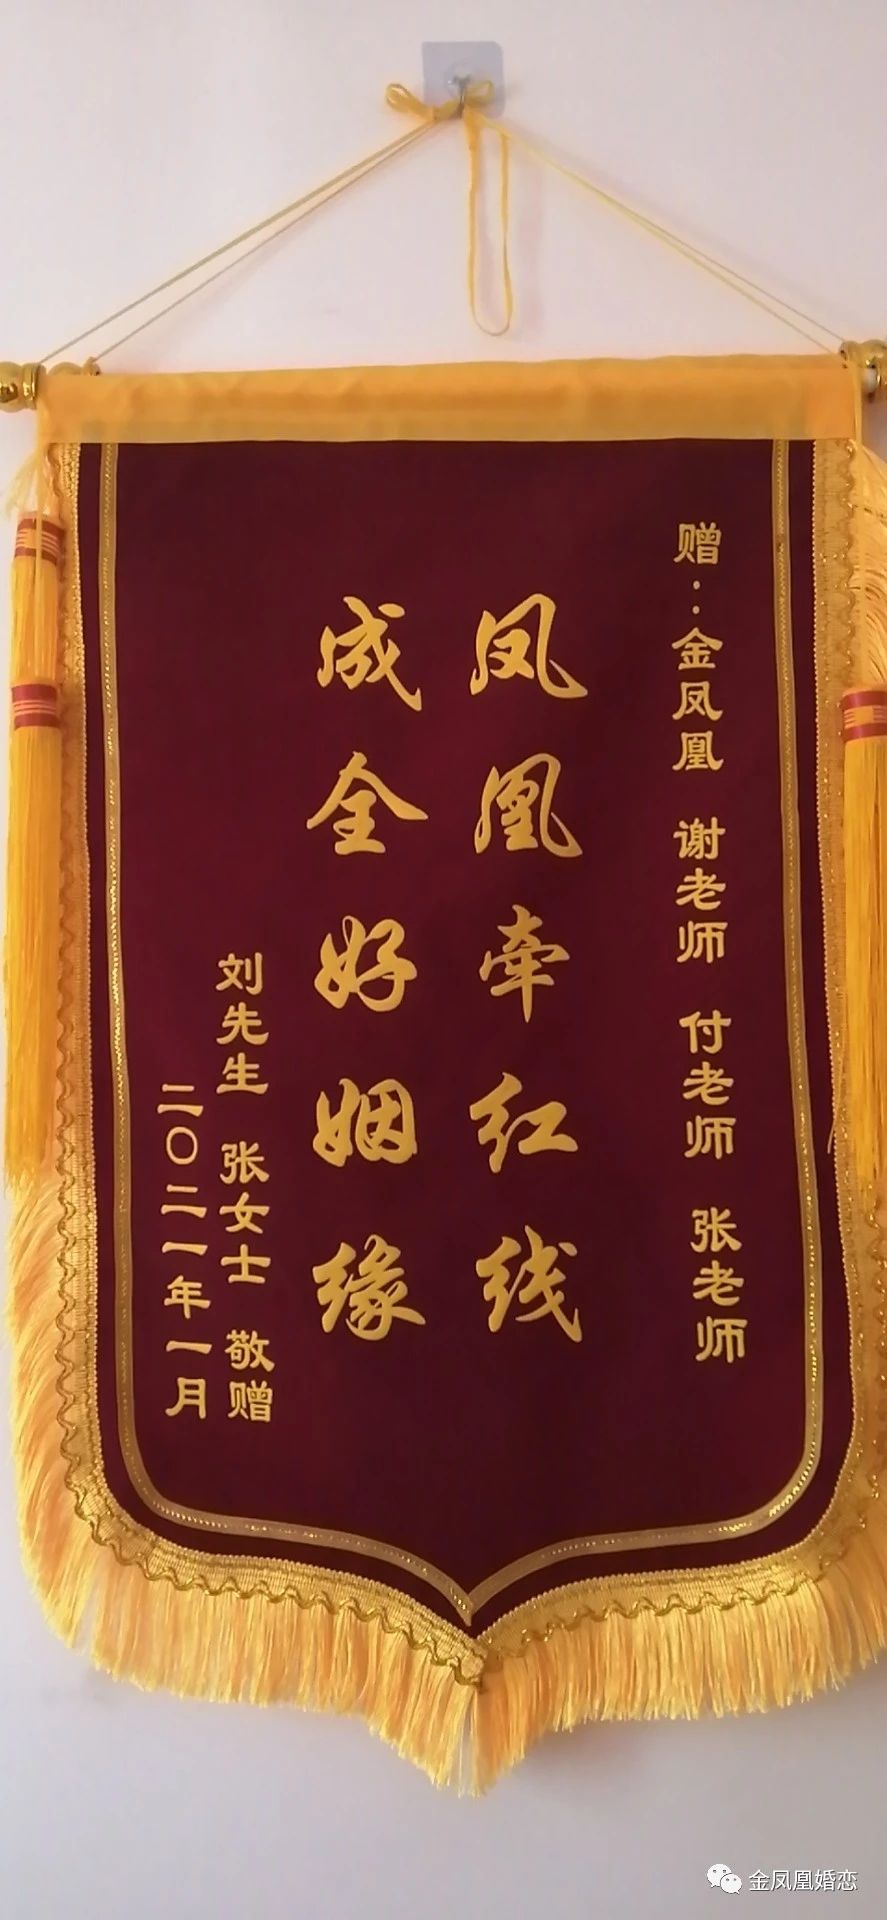 赠：金凤凰 谢老师 付老师 张老师
凤凰牵红线
成全好姻缘
刘先生 张女士 敬赠
二〇二一年一月
金凤凰婚恋